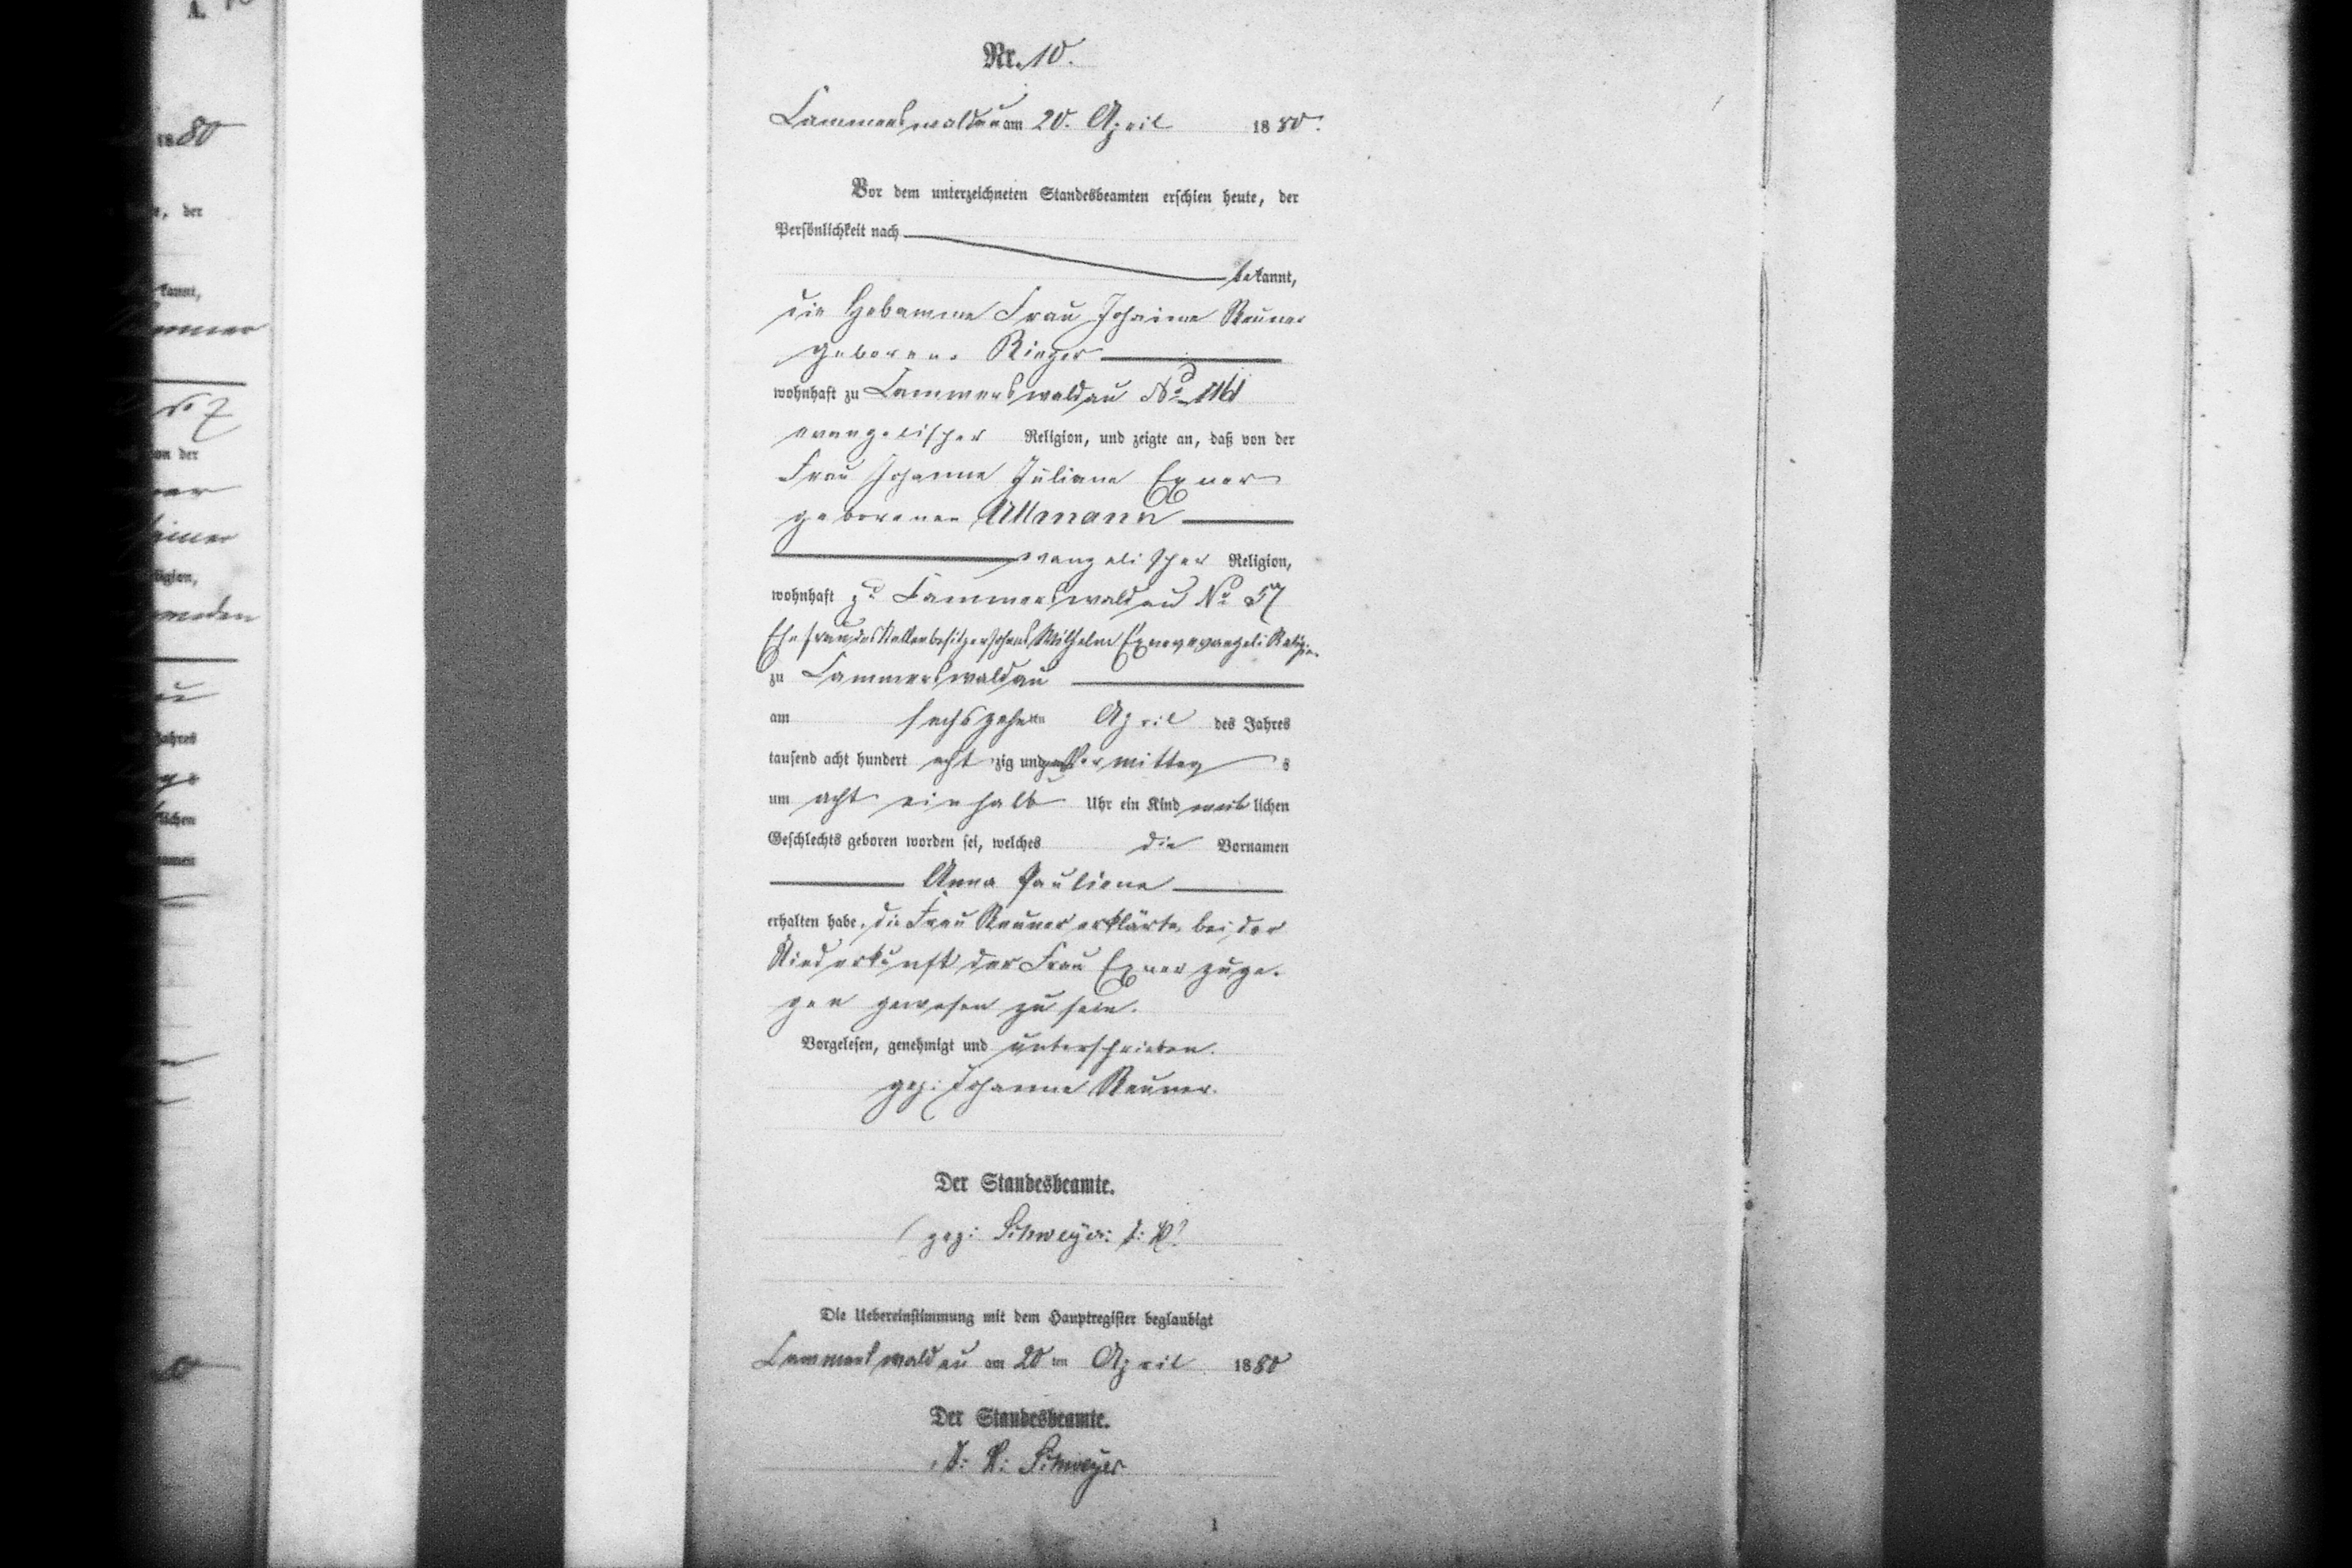 A.
1880
e, der
kannt,
No 7
von der
einer
Religion,
Jahres
lichen
Vornamen
Nr. 10.
Lammerswaldau am 20. April 1880.
Vor dem unterzeichneten Standesbeamten erschien heute, der
Persönlichkeit nach
bekannt,
die Hebamme Frau Johanne Reuner
geborene Rieger
wohnhaft zu Lammerswaldau No 116
evangelischer Religion, und zeigte an, daß von der
Frau Johanne Juliane Exner
geborenen Ullmann
evangelischer Religion,
wohnhaft zu Lammerswaldau No 57
Ehefrau des Stellenbesitzersohns Wilhelm Exner evangeli Religion
zu Lammerswaldau
am sechszehnten April des Jahres
tausend acht hundert acht zig und Vormittag s
um acht einhalb Uhr ein Kind weib lichen
Geschlechts geboren worden sei, welches die Vornamen
Anna Pauliene
erhalten habe. die Frau Reuner erklärte, bei der
Niederkunft der Frau Exner zuge-
gen gewesen zu sein.
Vorgelesen, genehmigt und unterschrieben.
gez: Johanne Reuner.
Der Standesbeamte.
gez: Schweyer: I: V:
Die Uebereinstimmung mit dem Hauptregister beglaubigt
Lammerswaldau am 20 ten April 1880
Der Standesbeamte.
I: V: Schweyer
1